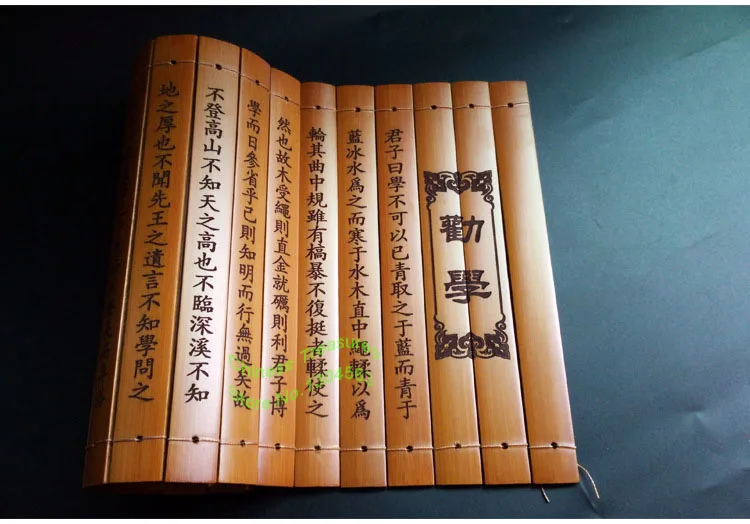 勸學
君子曰學不可以已青取之于藍而青于
藍冰水爲之而寒于水木直中繩輮以爲
輪其曲中規雖有槁暴不復挺者輮使之
然也故木受繩則直金就礪則利君子博
學而日參省乎己則知明而行無過矣故
不登高山不知天之高也不臨深溪不知
地之厚也不聞先王之遺言不知學問之